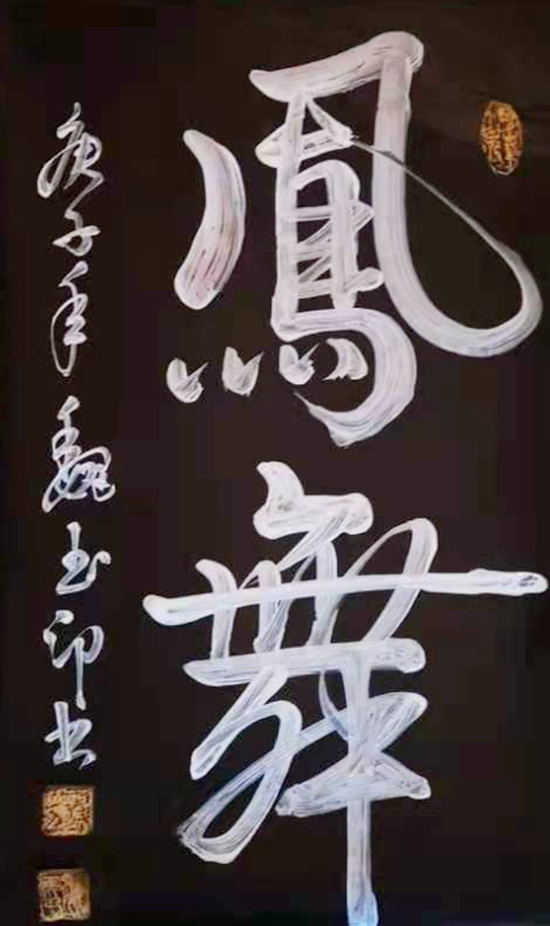 鳳舞
庚子年魏玉印书